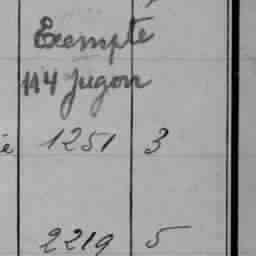 Exempté
114 Jugon
é 1251 3
2219 5